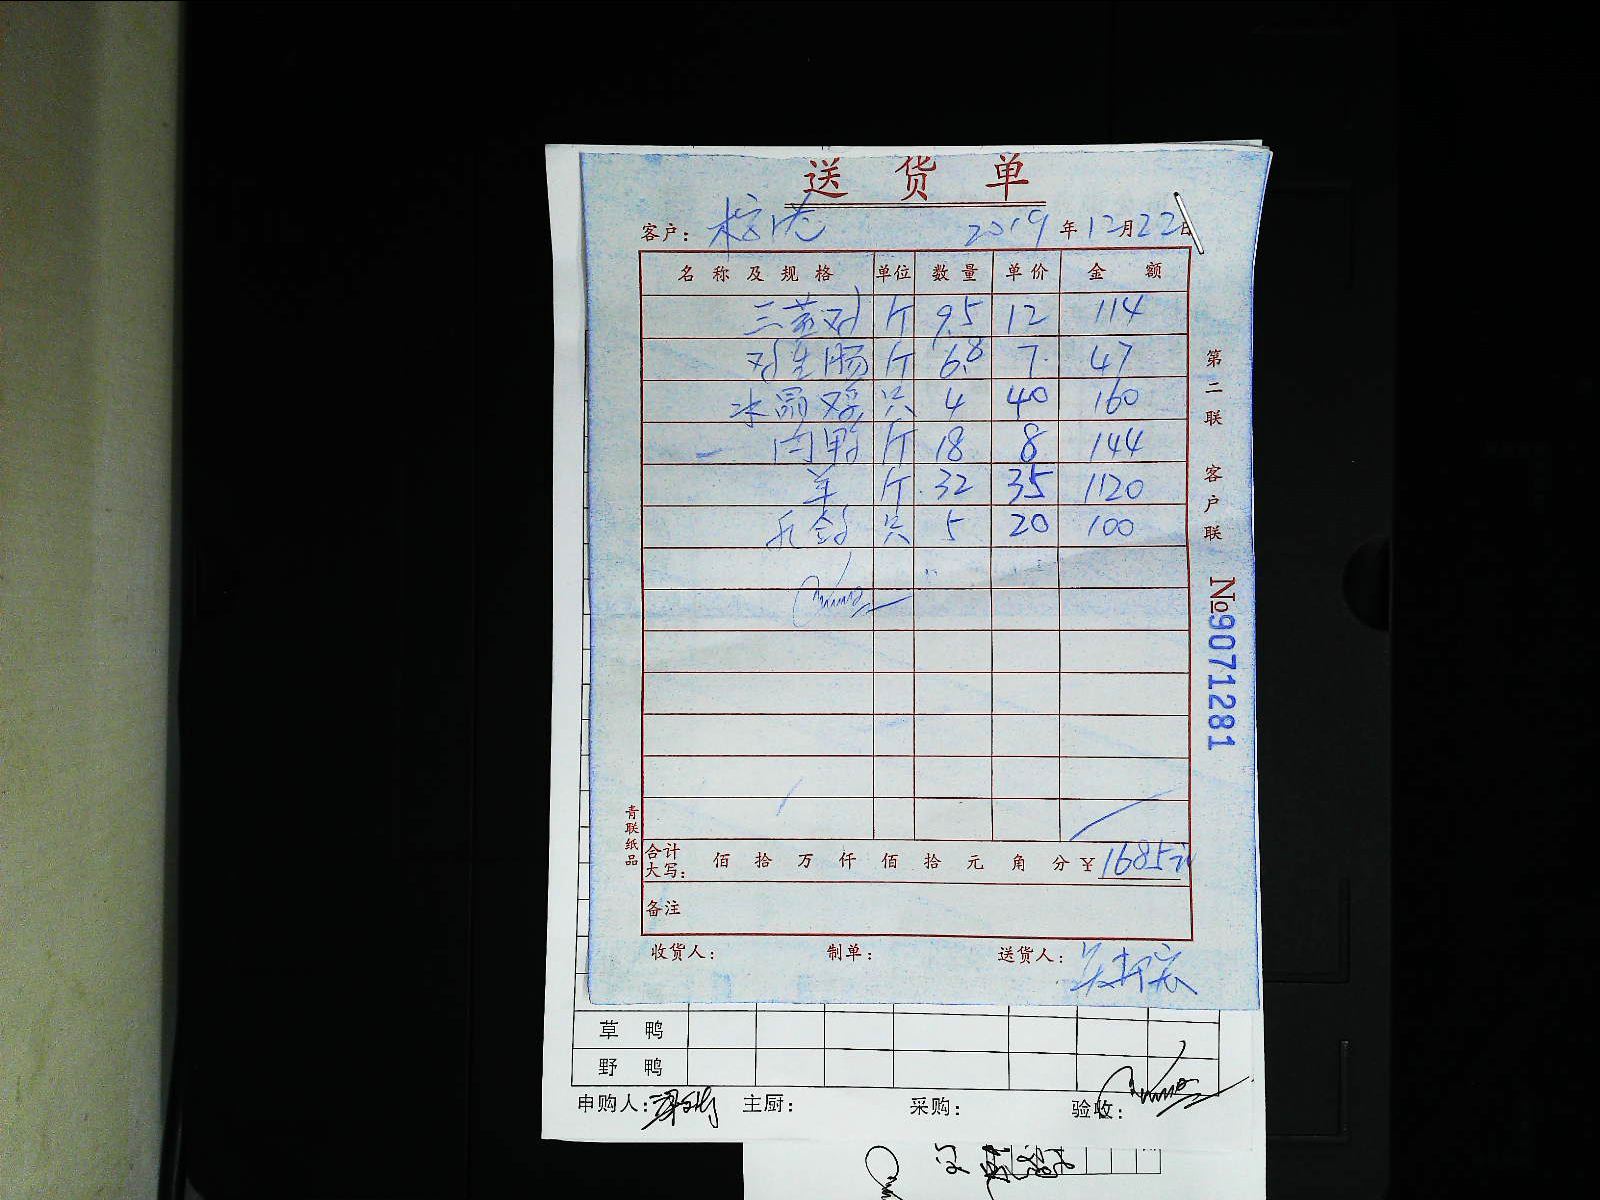 送货单
客户： 2019年12月22日
名称及规格 单位 数量 单价 金额
三黄 斤 9.5 12 114
生肠 斤 6.8 7 47
水晶鸡 只 4 40 160
肉鸭 斤 18 8 144
羊 斤 32 35 1120
乳鸽 只 5 20 100
合计大写： 佰 拾 万 仟 佰 拾 元 角 分 ¥1685元
备注
收货人： 制单： 送货人：
第二联 客户联
№9071281
青联纸品
草鸭
野鸭
申购人： 主厨： 采购： 验收：